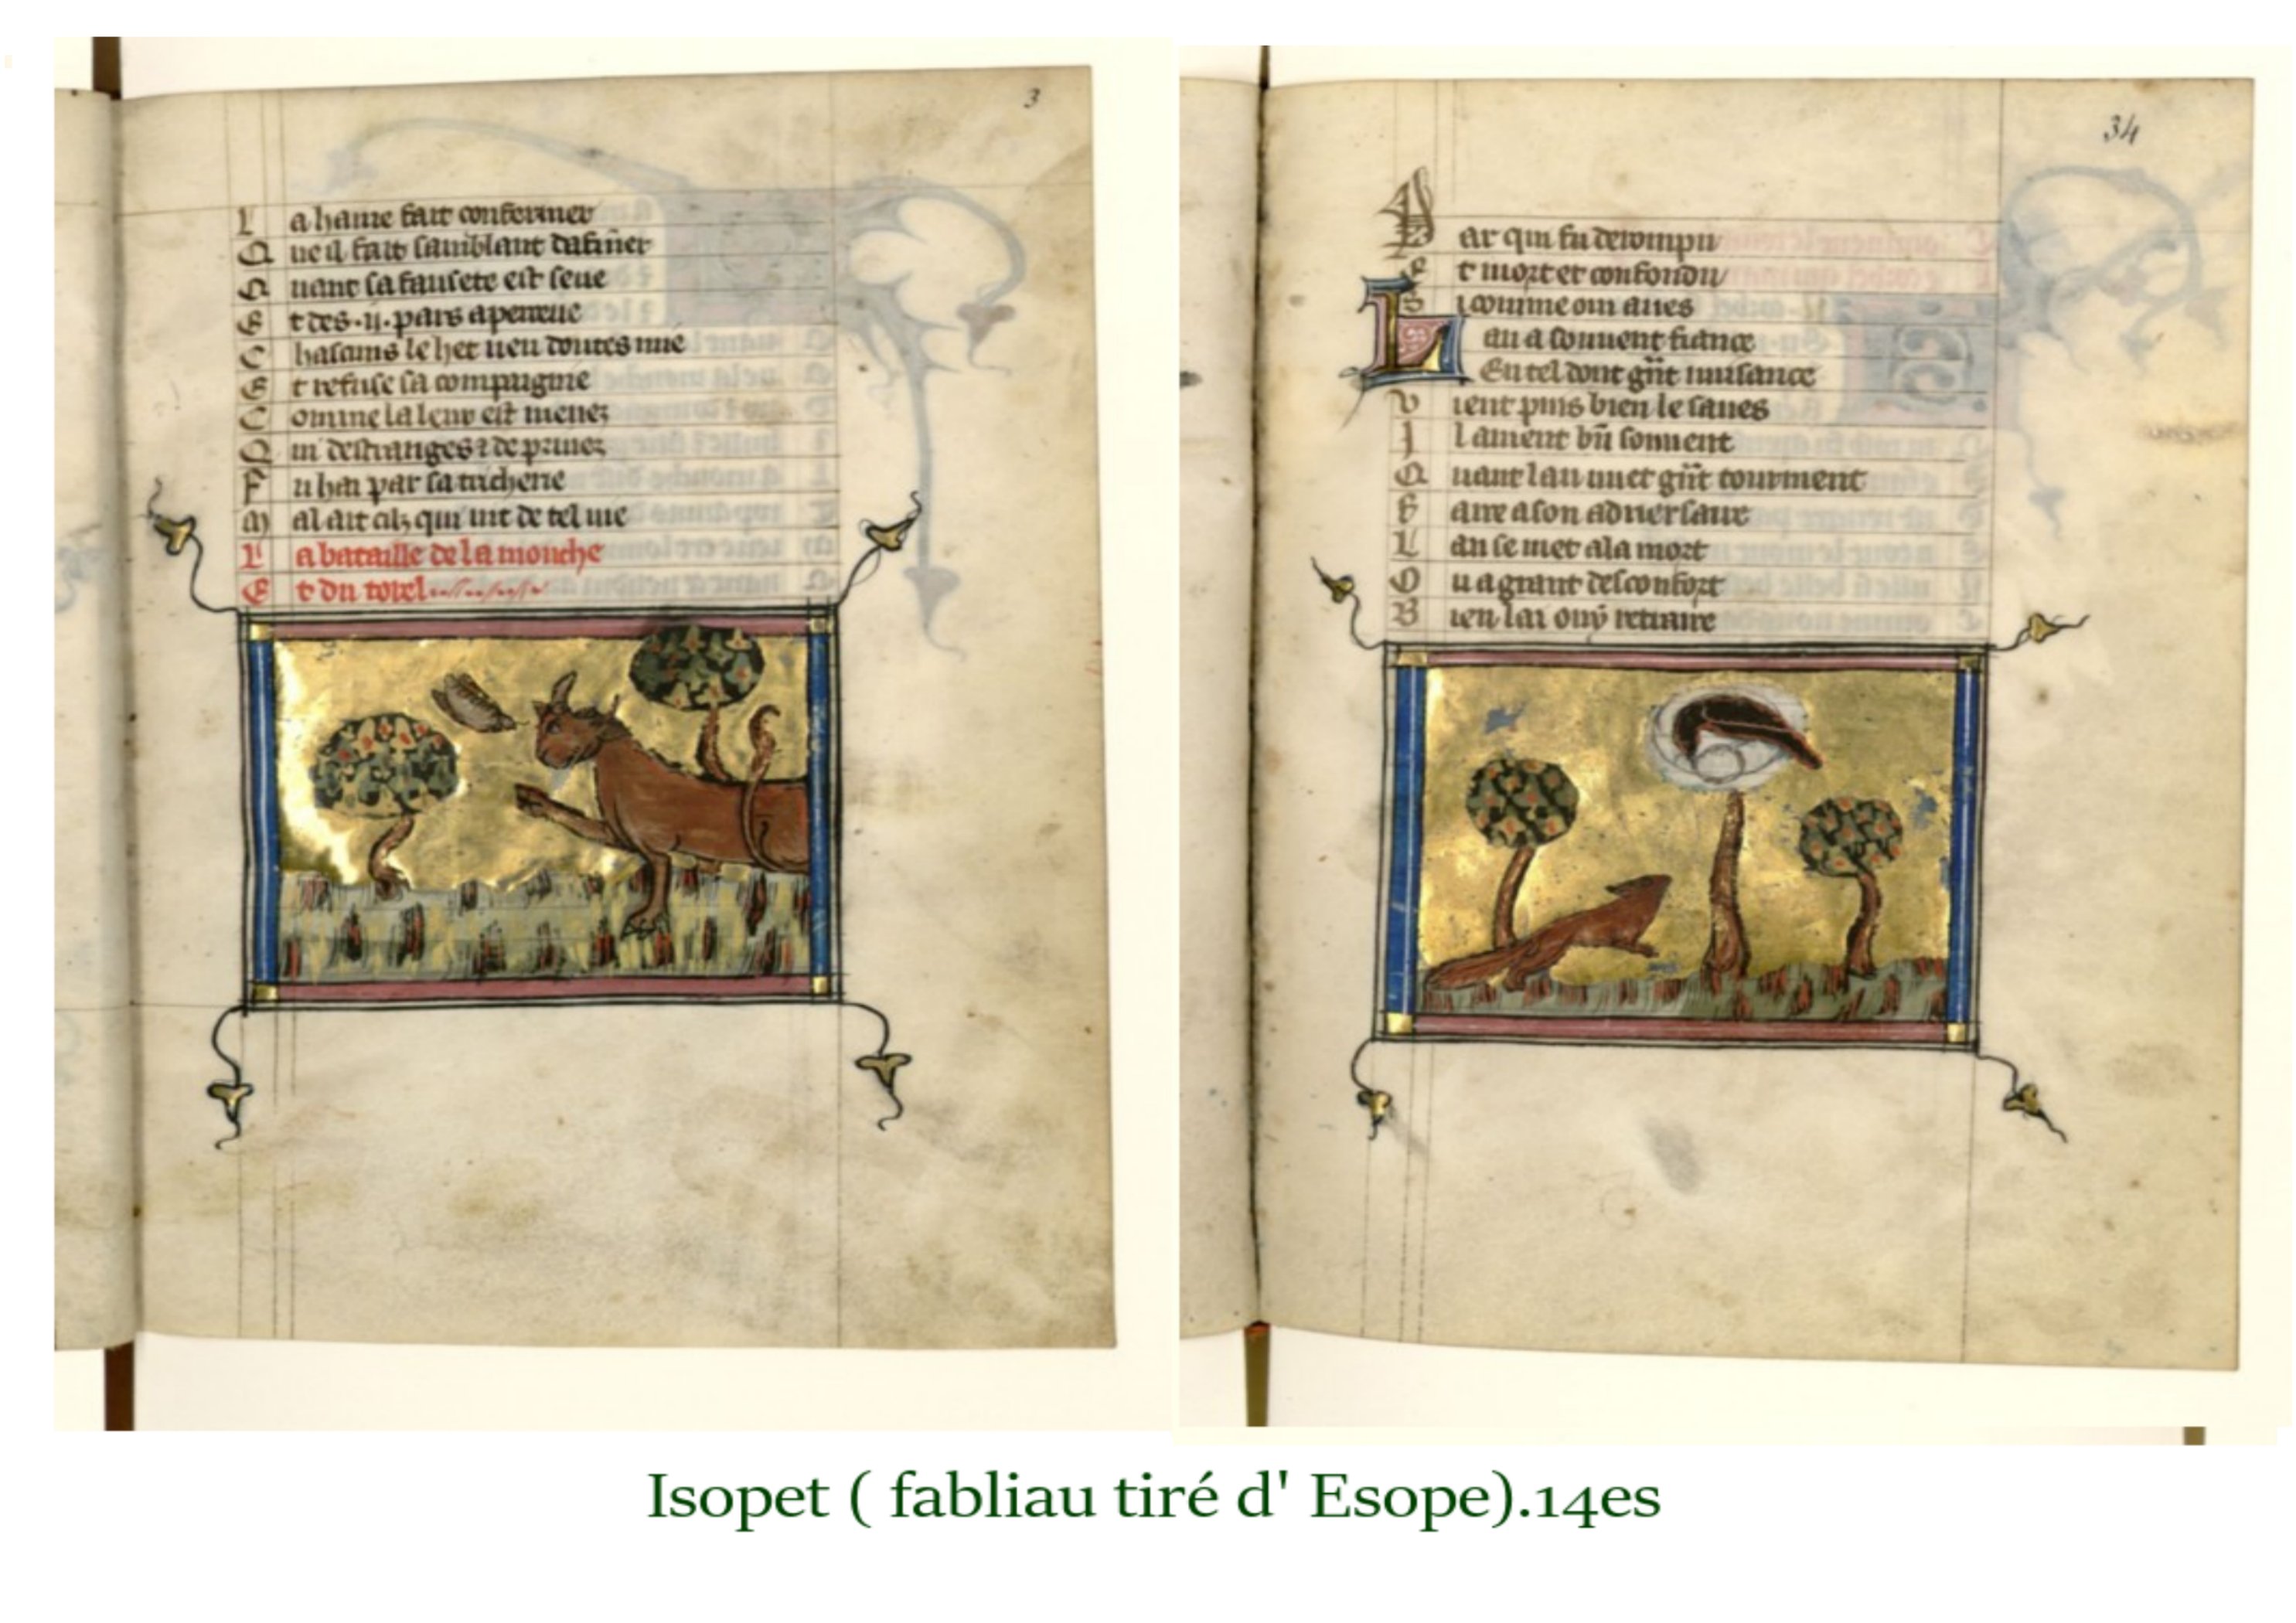 3
L a haine fait confermer
Q ue il fait samblant dafiner
Q uant sa fausete est seue
E t des .ij. pars aperceue
C hascuns le het
E t refuse sa compaignie
C omme la
Q ui destranges et de privez
F u hai par sa tricherie
M al ait cilz qui vit de tel vie
L a bataille de la mouche
E t du torel
34
P ar qui fu derompu
E t mort et confondu
S i comme oui aves
L an a souvent fiance
En tel dont gnt nuisance
V ient puis bien le saves
I l avient bn souvent
Q uant lan met gnt tourment
F aire a son adversaire
L an se met a la mort
O u a grant desconfort
B ien lai ouy retraire
Isopet ( fabliau tiré d' Esope).14es